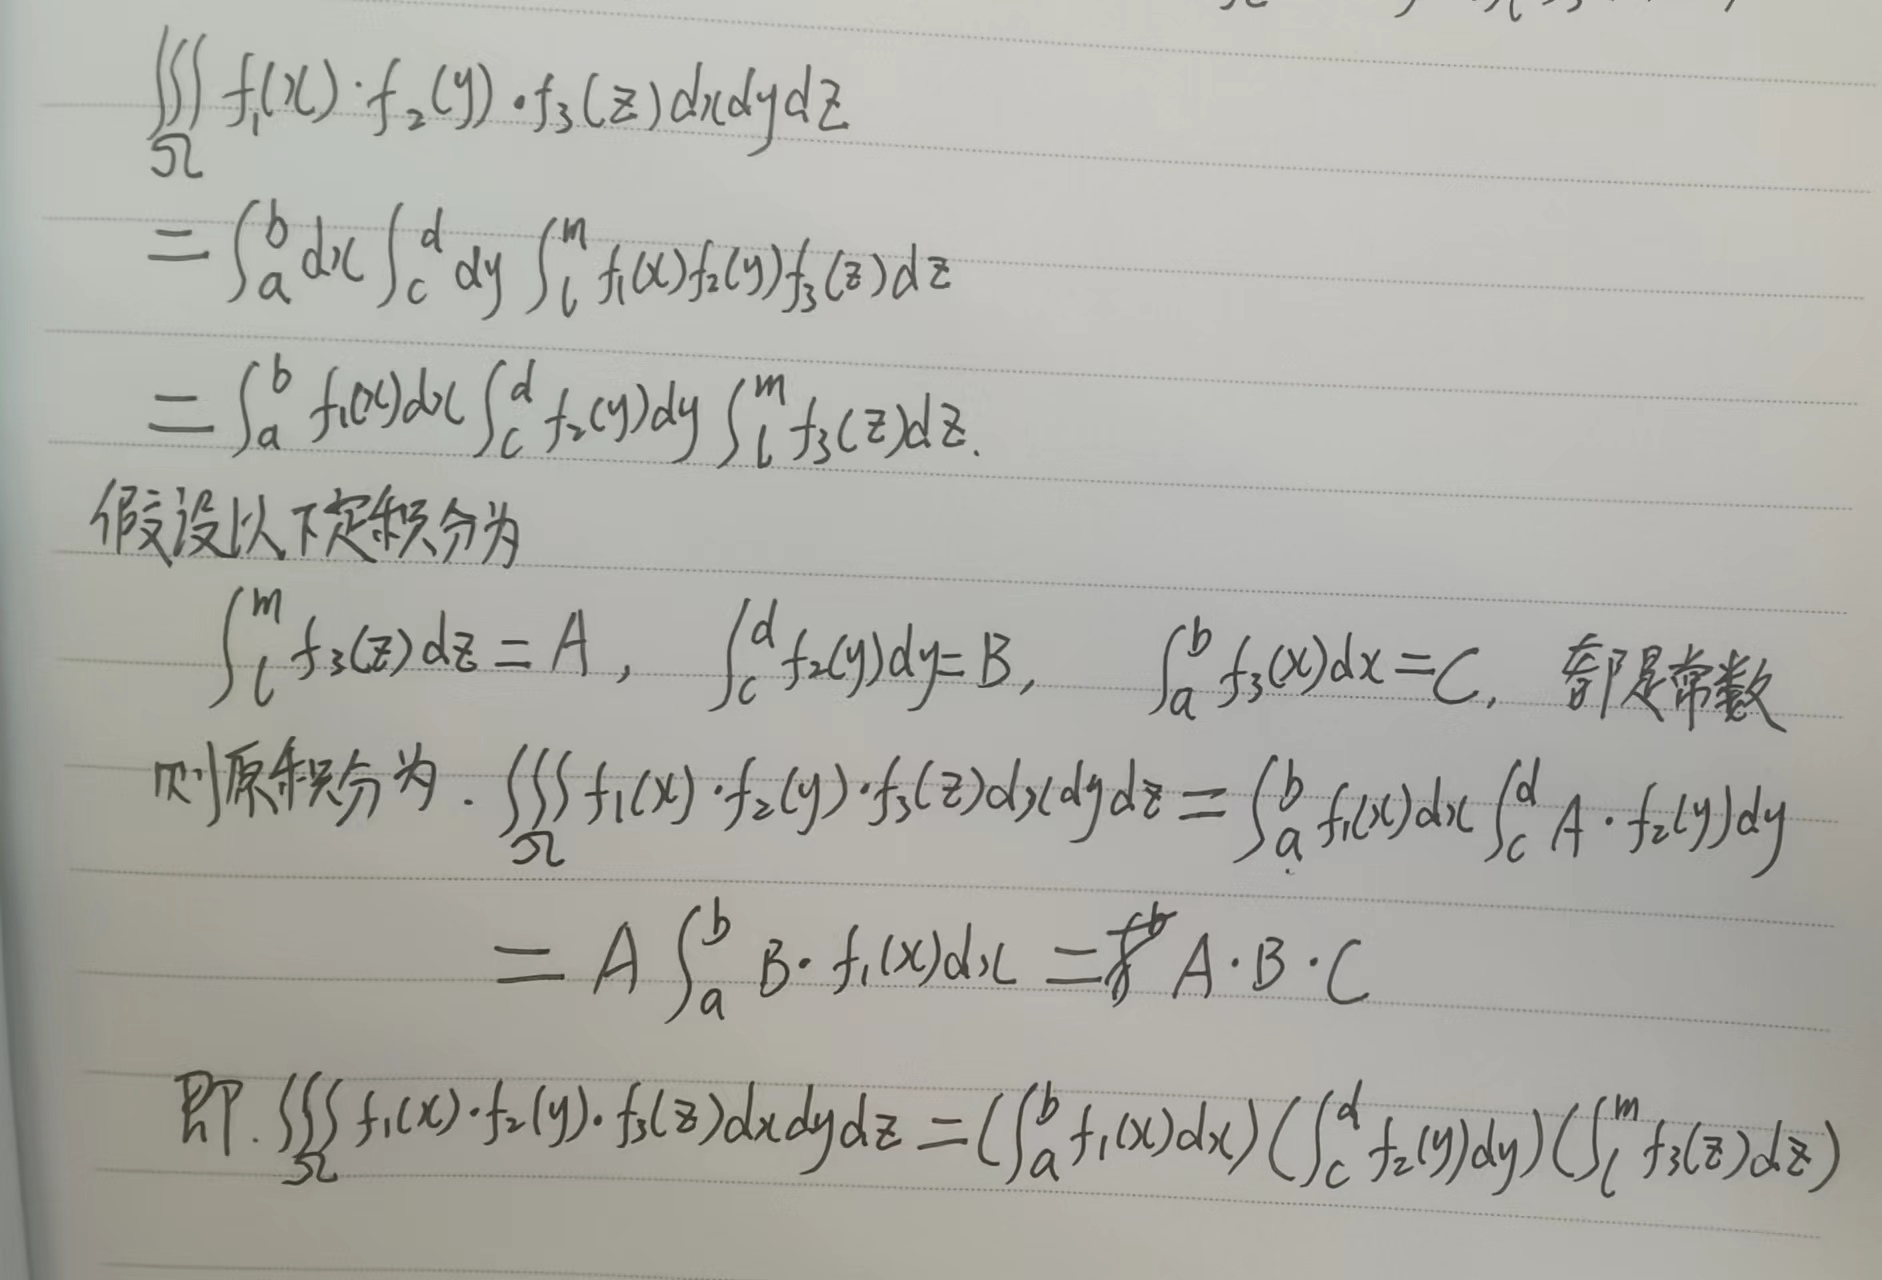 ∭_Ω f₁(x)·f₂(y)·f₃(z)dxdydz
= ∫_a^b dx ∫_c^d dy ∫_l^m f₁(x)f₂(y)f₃(z)dz
= ∫_a^b f₁(x)dx ∫_c^d f₂(y)dy ∫_l^m f₃(z)dz.
假设以下定积分为
∫_l^m f₃(z)dz = A, ∫_c^d f₂(y)dy = B, ∫_a^b f₃(x)dx = C, 都是常数
则原积分为. ∭_Ω f₁(x)·f₂(y)·f₃(z)dxdydz = ∫_a^b f₁(x)dx ∫_c^d A·f₂(y)dy
= A ∫_a^b B·f₁(x)dx = A·B·C
即. ∭_Ω f₁(x)·f₂(y)·f₃(z)dxdydz = (∫_a^b f₁(x)dx)(∫_c^d f₂(y)dy)(∫_l^m f₃(z)dz)